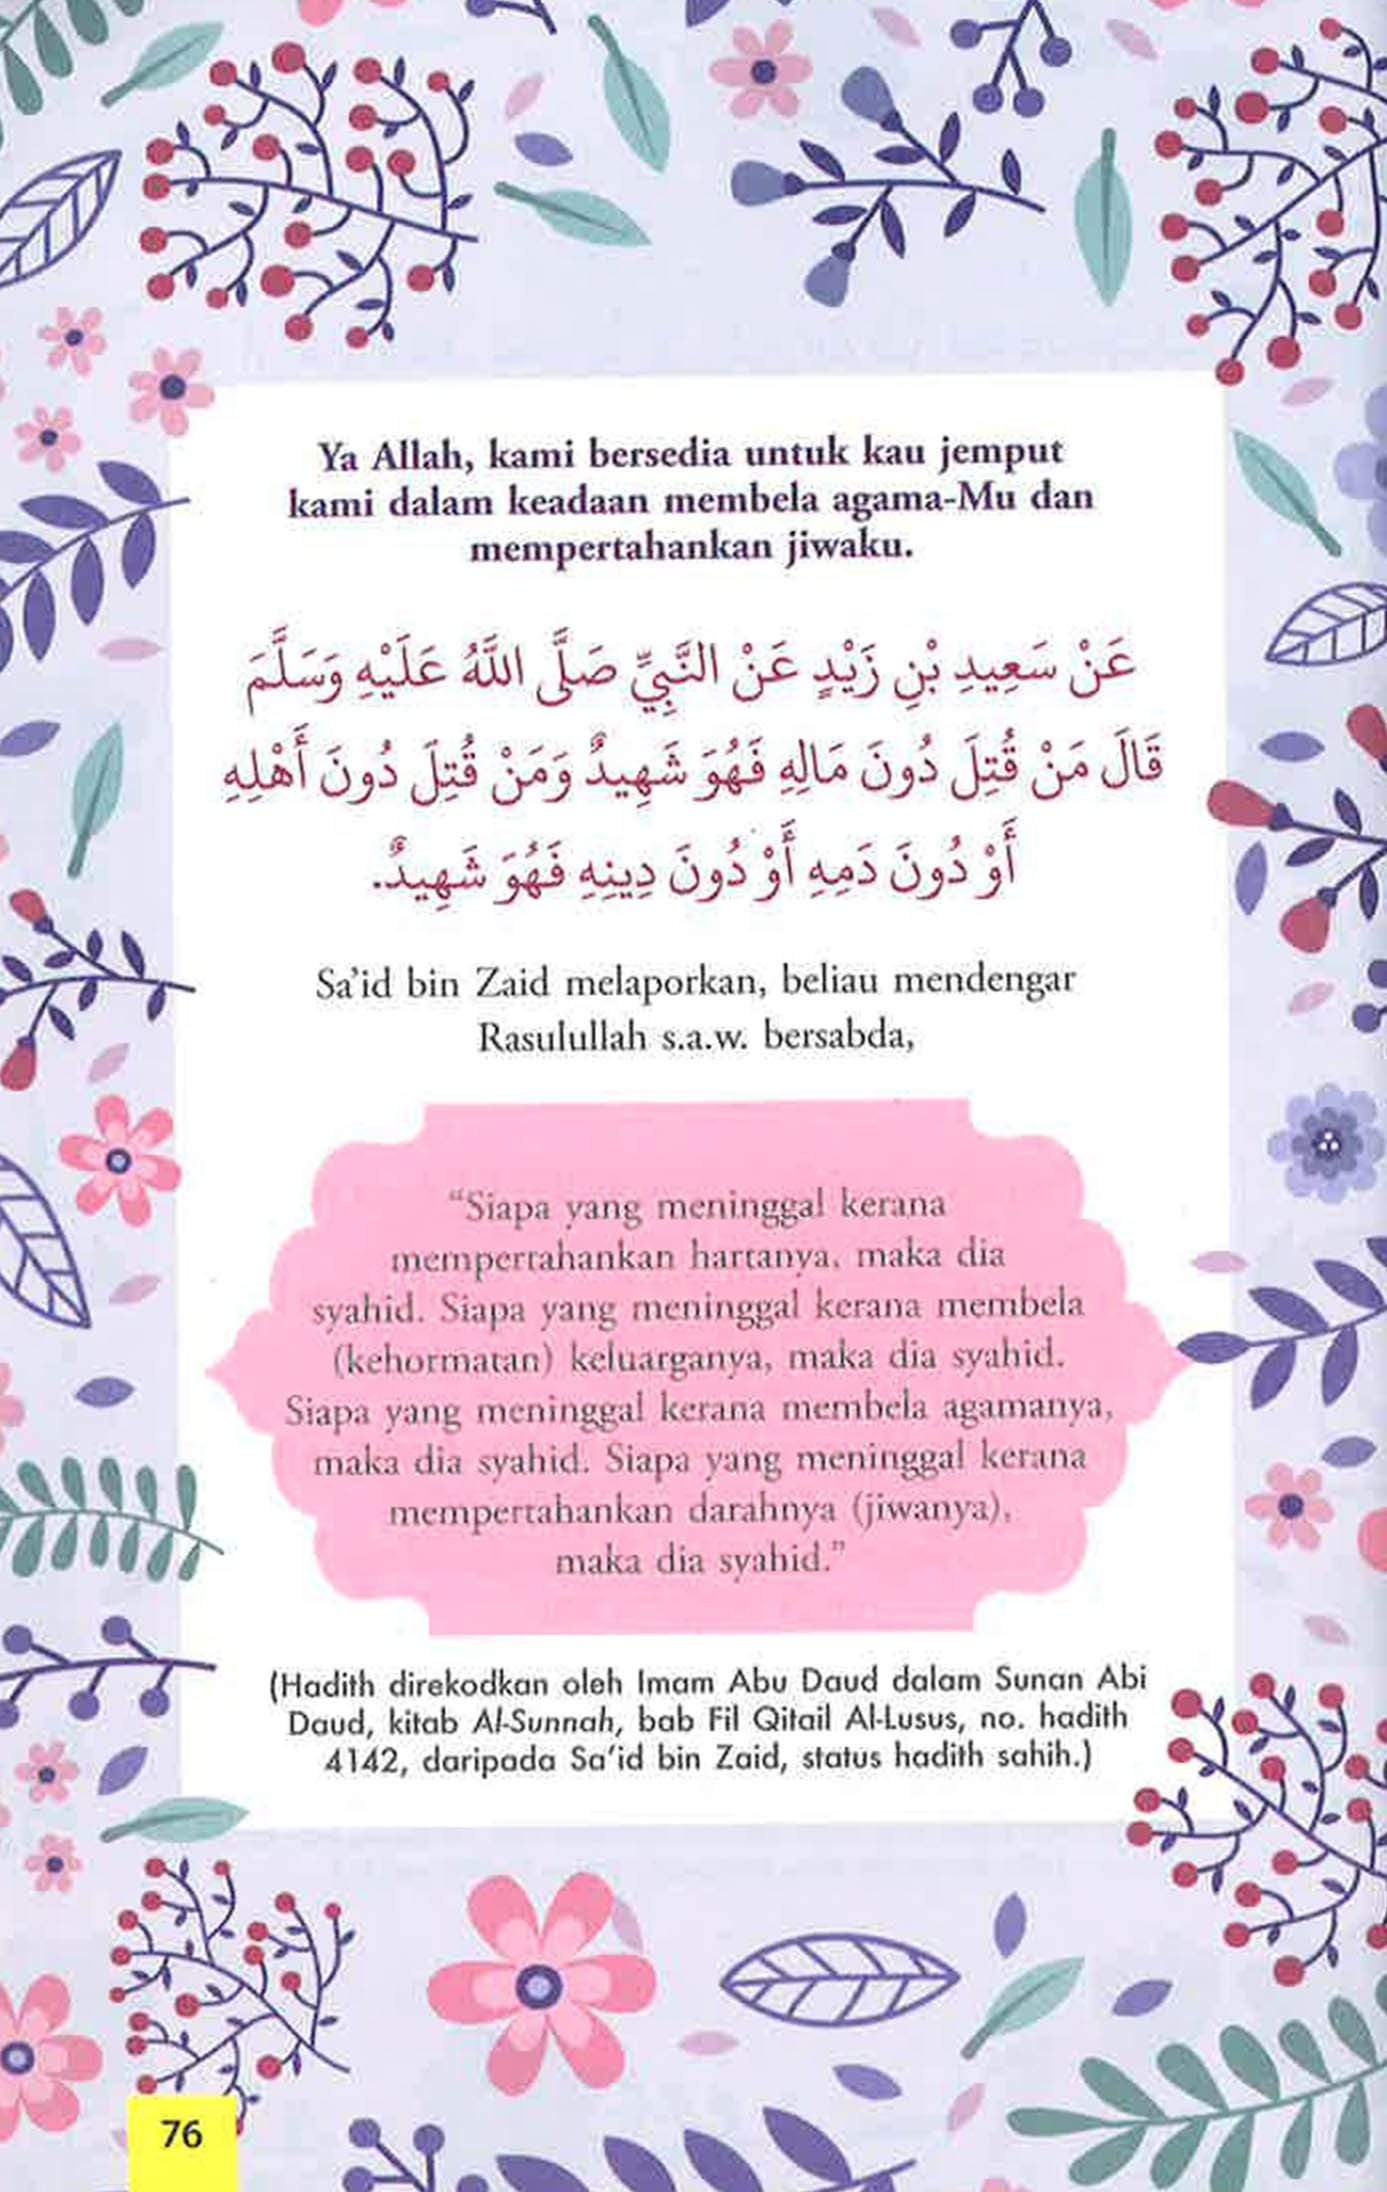 Ya Allah, kami bersedia untuk kau jemput
kami dalam keadaan membela agama-Mu dan
mempertahankan jiwaku.
عَنْ سَعِيدِ بْنِ زَيْدٍ عَنْ النَّبِيِّ صَلَّى اللَّهُ عَلَيْهِ وَسَلَّمَ
قَالَ مَنْ قُتِلَ دُونَ مَالِهِ فَهُوَ شَهِيدٌ وَمَنْ قُتِلَ دُونَ أَهْلِهِ
أَوْ دُونَ دَمِهِ أَوْ دُونَ دِينِهِ فَهُوَ شَهِيدٌ.
Sa’id bin Zaid melaporkan, beliau mendengar
Rasulullah s.a.w. bersabda,
“Siapa yang meninggal kerana
mempertahankan hartanya, maka dia
syahid. Siapa yang meninggal kerana membela
(kehormatan) keluarganya, maka dia syahid.
Siapa yang meninggal kerana membela agamanya,
maka dia syahid. Siapa yang meninggal kerana
mempertahankan darahnya (jiwanya),
maka dia syahid.”
(Hadith direkodkan oleh Imam Abu Daud dalam Sunan Abi
Daud, kitab Al-Sunnah, bab Fil Qitail Al-Lusus, no. hadith
4142, daripada Sa’id bin Zaid, status hadith sahih.)
76